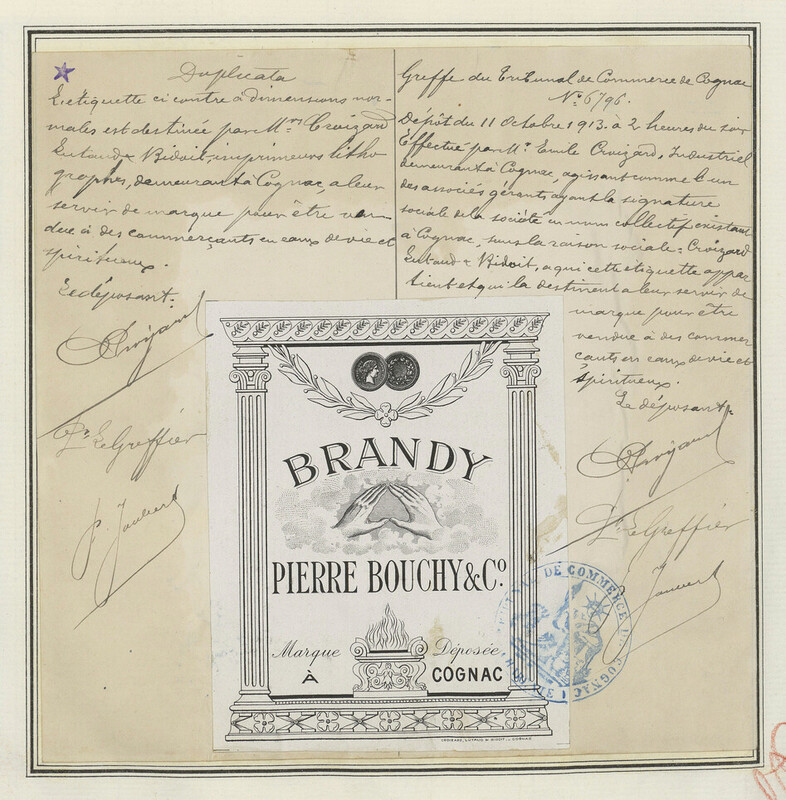 Duplicata
L'étiquette ci contre à dimensions nor-
males est destinée par Mrs Croizard
Lutaud & Bidoit, imprimeurs litho
graphes, demeurant à Cognac, a leur
servir de marque pour être ven
due à des commerçants en eaux de vie et
spiritueux.
Le déposant:
Pr Le Greffier
Greffe du Tribunal de Commerce de Cognac
No. 6796.
Dépôt du 11 Octobre 1913. à 2 heures du soir
Effectué par M. Emile Croizard, Industriel
demeurant à Cognac, agissant comme l'un
des associés gérants ayant la signature
sociale de la société en nom collectif existant
à Cognac, sous la raison sociale: Croizard
Lutaud & Bidoit, a qui cette étiquette appar
tient et qui la destinent a leur servir de
marque pour être
vendue à des commer
çants en eaux de vie et
spiritueux.
Le déposant
Pr Le Greffier
BRANDY
PIERRE BOUCHY & Co.
Marque Déposée
À COGNAC
CROIZARD, LUTAUD & BIDOIT _ COGNAC
TRIBUNAL DE COMMERCE DE COGNAC